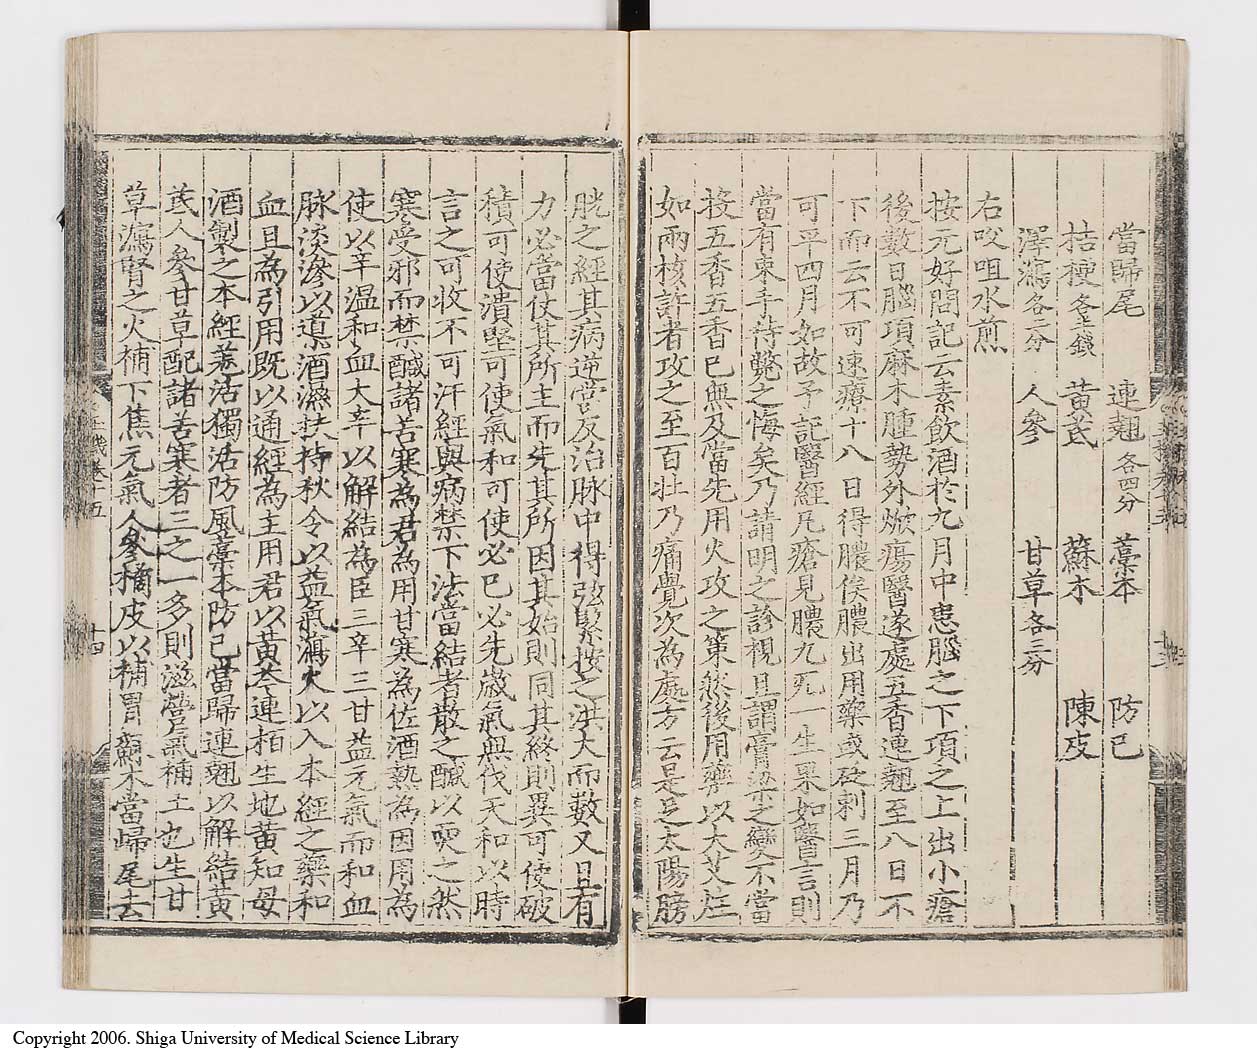 當歸尾 連翹各四分 藁本 防己
桔梗各五錢 黃芪 蘇木 陳皮
澤瀉各二分 人參 甘草各三分
右㕮咀水煎
按元好問記云素飲酒於九月中患腦之下項之上出小瘡
後數日腦項麻木腫勢外㷔瘍醫遂處五香連翹至八日不
下而云不可速療十八日得膿俟膿出用藥或砭刺三月乃
可平四月如故予記醫經凡瘡見膿九死一生果如醫言則
當有束手待斃之悔矣乃請明之診視且謂膏粱之變不當
投五香五香已無及當先用火攻之策然後用藥以大艾炷
如兩核許者攻之至百壯乃痛覺次為處方云是足太陽膀
胱之經其病逆當反治脉中得弦緊按之洪大而數又且有
力必當伏其所主而先其所因其始則同其終則異可使破
積可使潰堅可使氣和可使必已必先歲氣無伐天和以時
言之可收不可汗經與病禁下法當結者散之鹹以耎之然
寒受邪而禁鹹諸苦寒為君為用甘寒為佐酒熱為因用為
使以辛温和血大辛以解結為臣三辛三甘益元氣而和血
脉淡滲以導酒濕扶持秋令以益氣瀉火以入本經之藥和
血且為引用既以通經為主用君以黃芩連栢生地黃知母
酒製之本經羌活獨活防風藁本防己當歸連翹以解結黃
芪人參甘草配諸苦寒者三之一多則滋營氣補土也生甘
草瀉腎之火補下焦元氣人參橘皮以補胃蘇木當歸尾去
卷十五
十四
Copyright 2006. Shiga University of Medical Science Library